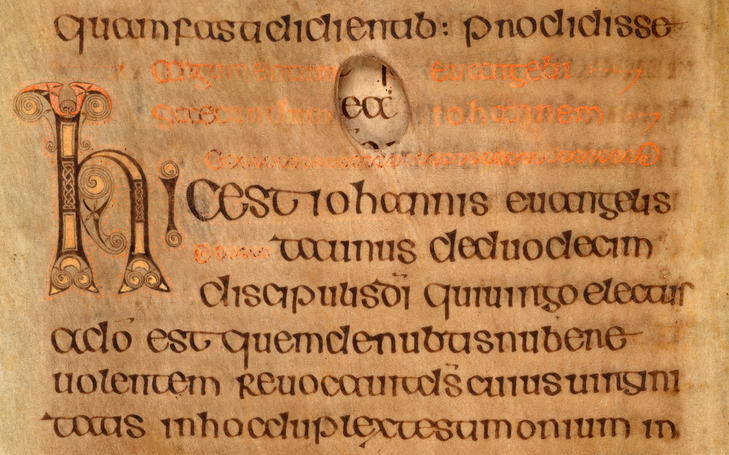 quam fas addicientab: prodidisse
Argumentum euangelii
secundum iohannem
eac
hic est iohannis euangelis
ta unus de duodecim
discipulis dī qui uirgo electus
a dō est quem de nubtiis nubere
uolentem reuocauit ds̄ cuius uirgini
tatis in hoc duplex testimonium in